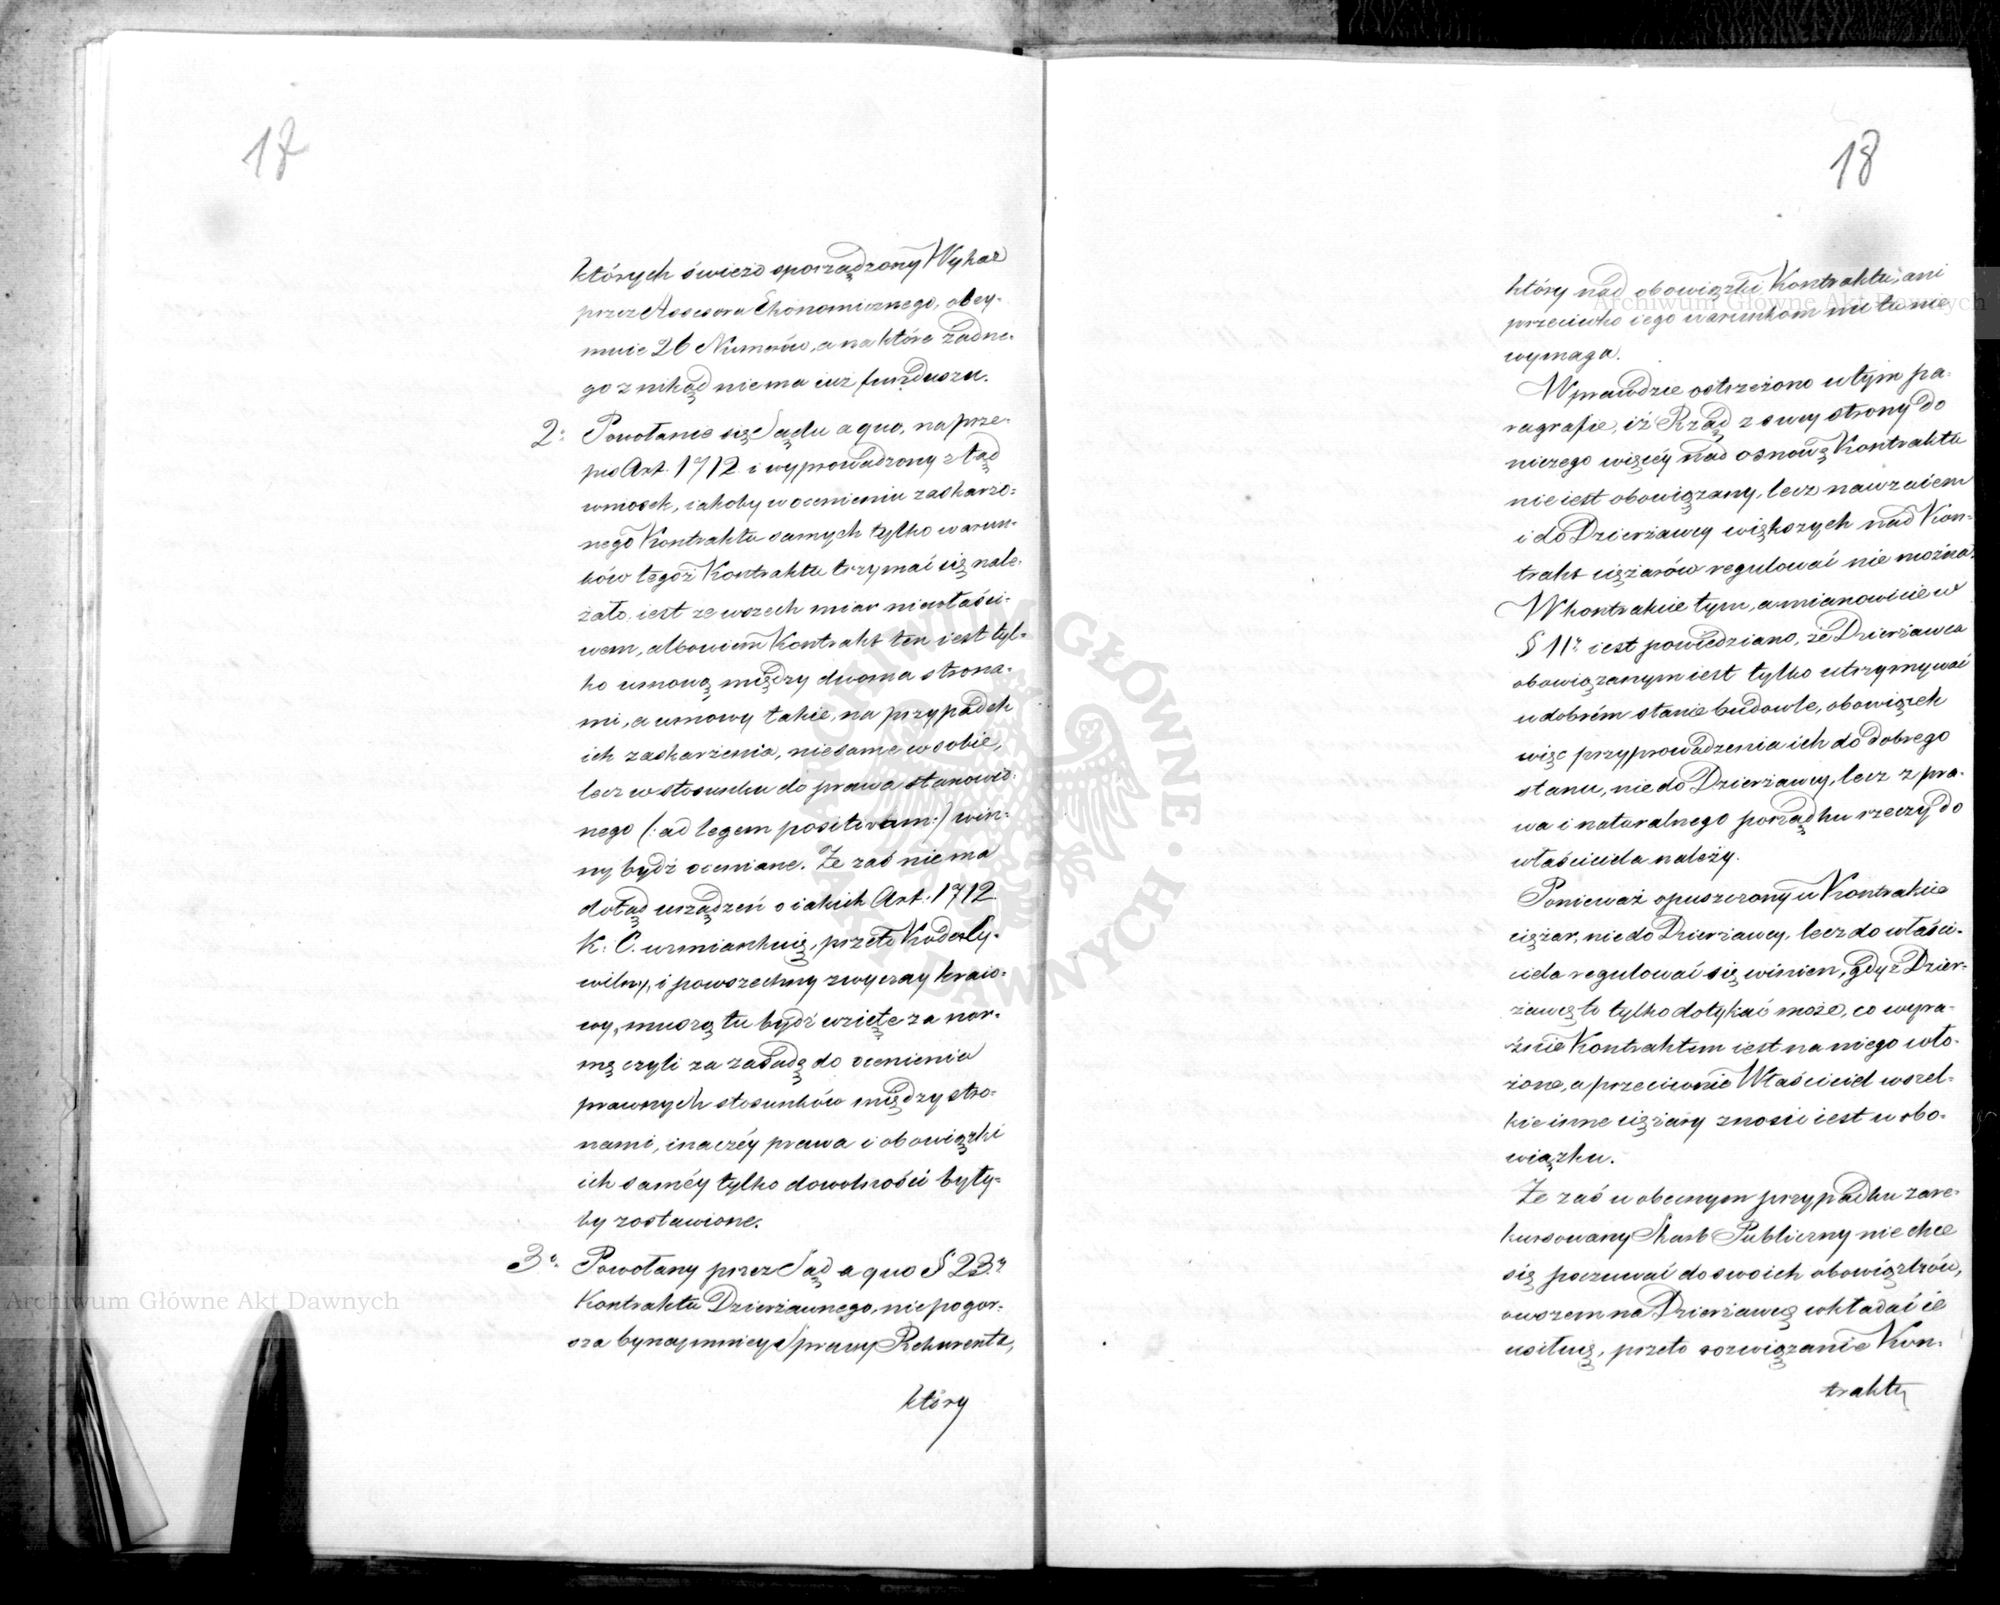 17
których świeżo sporządzony Wykaz
przez Assessora Ekonomicznego, obey-
muie 26 Numerów, a na które żadne-
go znikąd niema iuż funduszu.
2o Powołanie się Sądu a quo, na prze-
pis Art. 1712. i wyprowadzony ztąd
wniosek, iakoby w ocenieniu zaskarżo-
nego Kontraktu samych tylko warun-
ków tegoż Kontraktu trzymać się nale-
żało, iest ze wszech miar niewłaści-
wem, albowiem Kontrakt ten iest tyl-
ko umową między dwoma strona-
mi, a umowy takie, na przypadek
ich zaskarżenia, niesame w sobie,
lecz w stosunku do prawa stanowio-
nego (: ad legem positivam :) win-
ny bydź oceniane. Że zaś niema
dotąd urządzeń o iakich Art. 1712.
K: C. wzmiankuię, przeto Kodex Cy-
wilny, i powszechny zwyczay kraio-
wy, muszą tu bydź wzięte za nor-
mę czyli za zasadę do ocenienia
prawnych stosunków między stro-
nami, inaczéy prawa i obowiązki
ich saméy tylko dowolności były-
by zostawione.
3o Powołany przez Sąd a quo § 23.
Kontraktu Dzierżawnego, niepogor-
sza bynaymniey Sprawy Rekurenta,
który
18
który nad obowiązki Kontraktu, ani
przeciwko iego warunkom nic tu nie
wymaga.
Wprawdzie ostrzeżono w tym pa-
ragrafie, iż Rząd z swey strony do
niczego więcéy nad osnowę Kontraktu
nie iest obowiązany, lecz nawzaiem
i do Dzierżawcy większych nad Kon-
trakt ciężarów regulować nie można.
W kontrakcie tym, a mianowicie w
§ 11. iest powiedziano, że Dzierżawca
obowiązanym iest tylko utrzymywać
w dobrém stanie budowle, obowiązek
więc przyprowadzenia ich do dobrego
stanu, nie do Dzierżawcy, lecz z pra-
wa i naturalnego porządku rzeczy do
właściciela należy.
Ponieważ opuszczony w Kontrakcie
ciężar, nie do Dzierżawcy, lecz do właści-
ciela regulować się winien, gdyż Dzier-
żawcę to tylko dotykać może, co wyra-
źnie Kontraktem iest na niego wło-
żone, a przeciwnie Właściciel wszel-
kie inne ciężary znosić iest w obo-
wiązku.
Że zaś w obecnym przypadku zare-
kursowany Skarb Publiczny nie chce
się poczuwać do swoich obowiązków,
owszem na Dzierżawcę wkładać ie
usiłuię, przeto rozwiązanie Kon-
traktu
Archiwum Główne Akt Dawnych
Archiwum Główne Akt Dawnych
ARCHIWUM GŁÓWNE AKT DAWNYCH